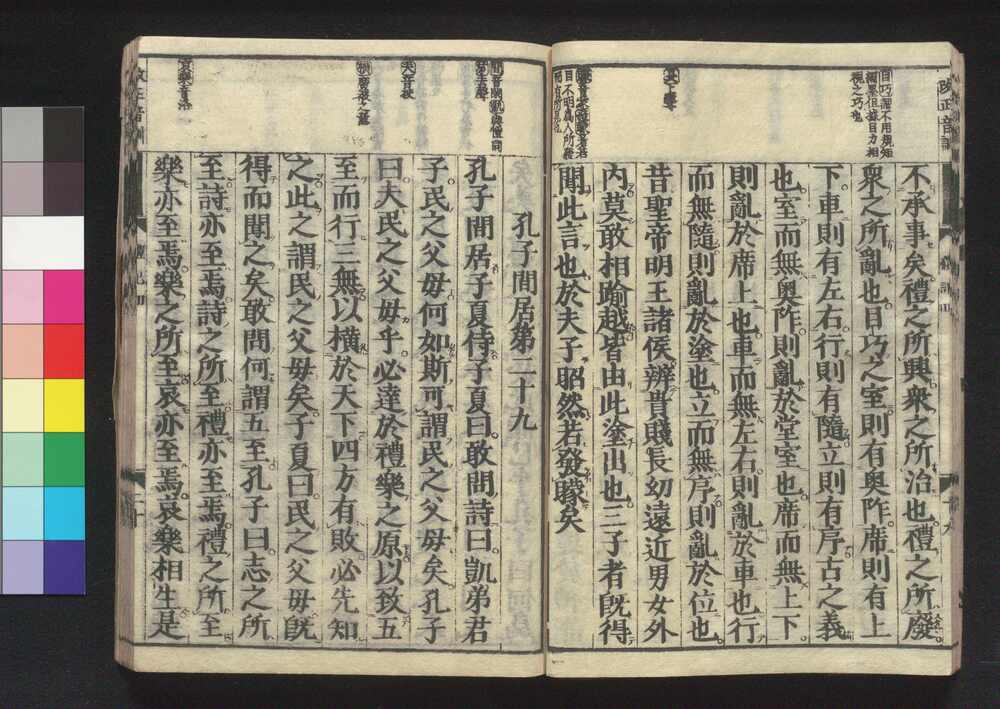 目巧謂不用規矩
繩墨但據目力相
視之巧也
不承事矣禮之所興衆之所治也禮之所廢
衆之所亂也目巧之室則有奧阼席則有上
下車則有左右行則有隨立則有序古之義
也室而無奧阼則亂於堂室也席而無上下
則亂於席上也車而無左右則亂於車也行
而無隨則亂於塗也立而無序則亂於位也
昔聖帝明王諸侯辨貴賤長幼遠近男女外
内莫敢相踰越皆由此塗出也三子者既得
聞此言也於夫子昭然若發矇矣
孔子閒居第二十九
孔子閒居子夏侍子夏曰敢問詩曰凱弟君
子民之父母何如斯可謂民之父母矣孔子
曰夫民之父母乎必達於禮樂之原以致五
至而行三無以橫於天下四方有敗必先知
之此之謂民之父母矣子夏曰民之父母既
得而聞之矣敢問何謂五至孔子曰志之所
至詩亦至焉詩之所至禮亦至焉禮之所至
樂亦至焉樂之所至哀亦至焉哀樂相生是